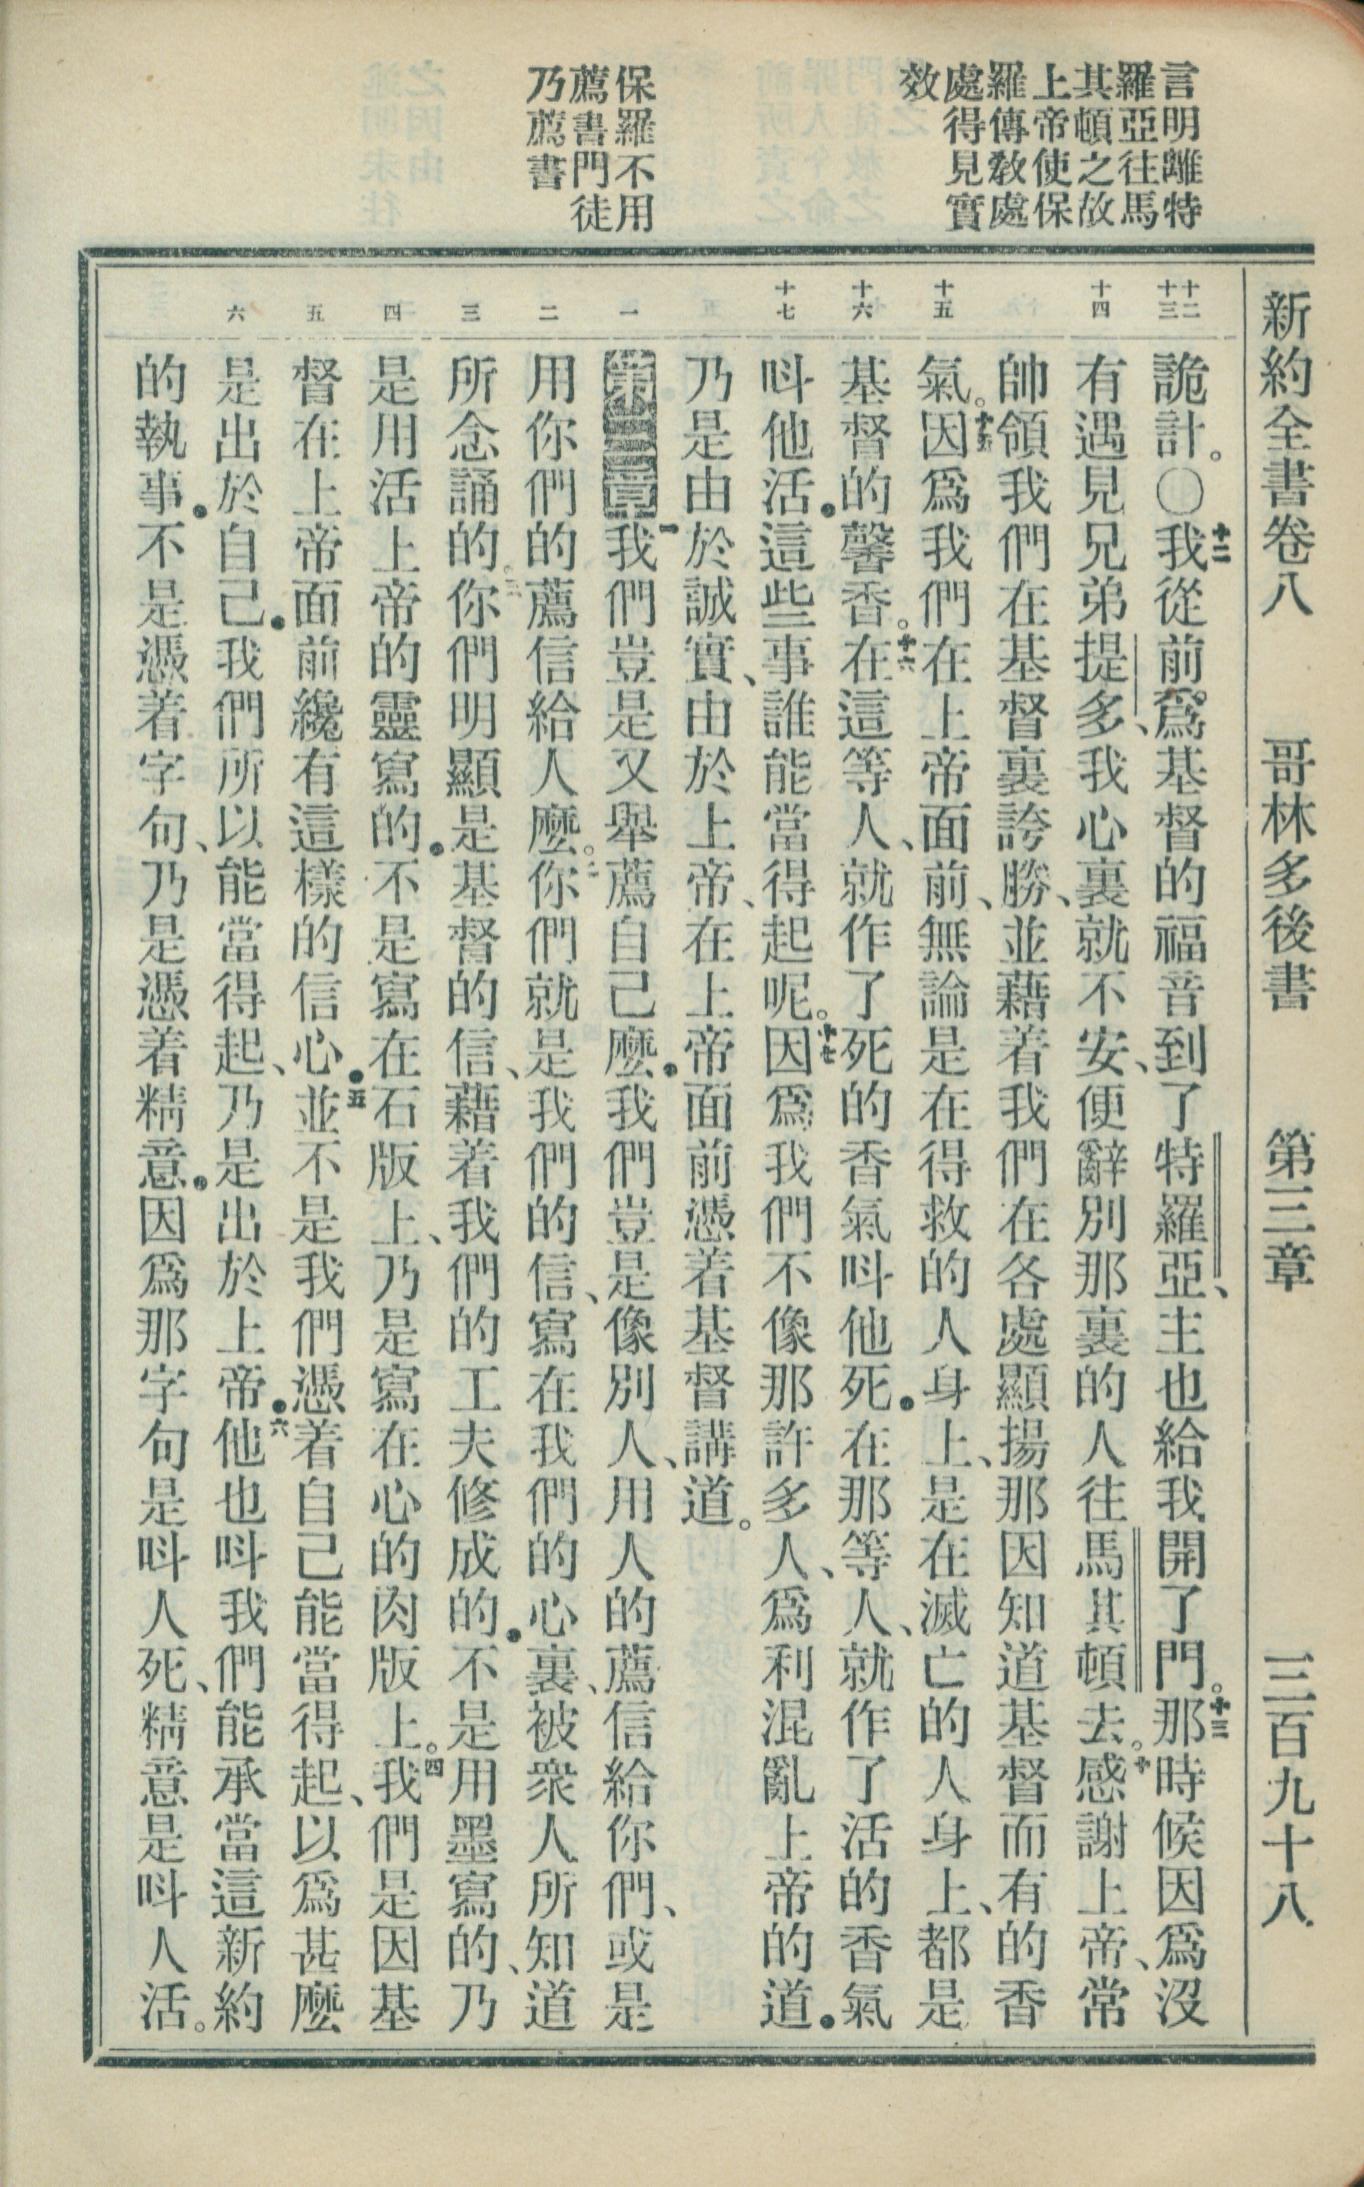 新約全書卷八　哥林多後書　第三章　三百九十八
言明離特
羅亞往馬
其頓之故
上帝使保
羅傳教處
處得見實
效
保羅不用
薦書門徒
乃薦書
十二
十三
十四
十五
十六
十七
一
二
三
四
五
六
詭計。〇十二我從前爲基督的福音到了特羅亞、主也給我開了門。十三那時候因爲沒
有遇見兄弟提多、我心裏就不安、便辭別那裏的人往馬其頓去。十四感謝上帝、常
帥領我們在基督裏誇勝、並藉着我們在各處顯揚那因知道基督而有的香
氣。十五因爲我們在上帝面前、無論是在得救的人身上、是在滅亡的人身上、都是
基督的馨香。十六在這等人、就作了死的香氣呌他死．在那等人、就作了活的香氣
呌他活．這些事誰能當得起呢。十七因爲我們不像那許多人、爲利混亂上帝的道．
乃是由於誠實、由於上帝、在上帝面前憑着基督講道。
第三章一我們豈是又舉薦自己麼．我們豈是像別人、用人的薦信給你們、或是
用你們的薦信給人麼。二你們就是我們的信、寫在我們的心裏、被衆人所知道
所念誦的三你們明顯是基督的信、藉着我們的工夫修成的．不是用墨寫的、乃
是用活上帝的靈寫的．不是寫在石版上、乃是寫在心的肉版上。四我們是因基
督在上帝面前纔有這樣的信心．五並不是我們憑着自己能當得起、以爲甚麼
是出於自己．我們所以能當得起、乃是出於上帝．六他也呌我們能承當這新約
的執事．不是憑着字句、乃是憑着精意．因爲那字句是呌人死、精意是呌人活。